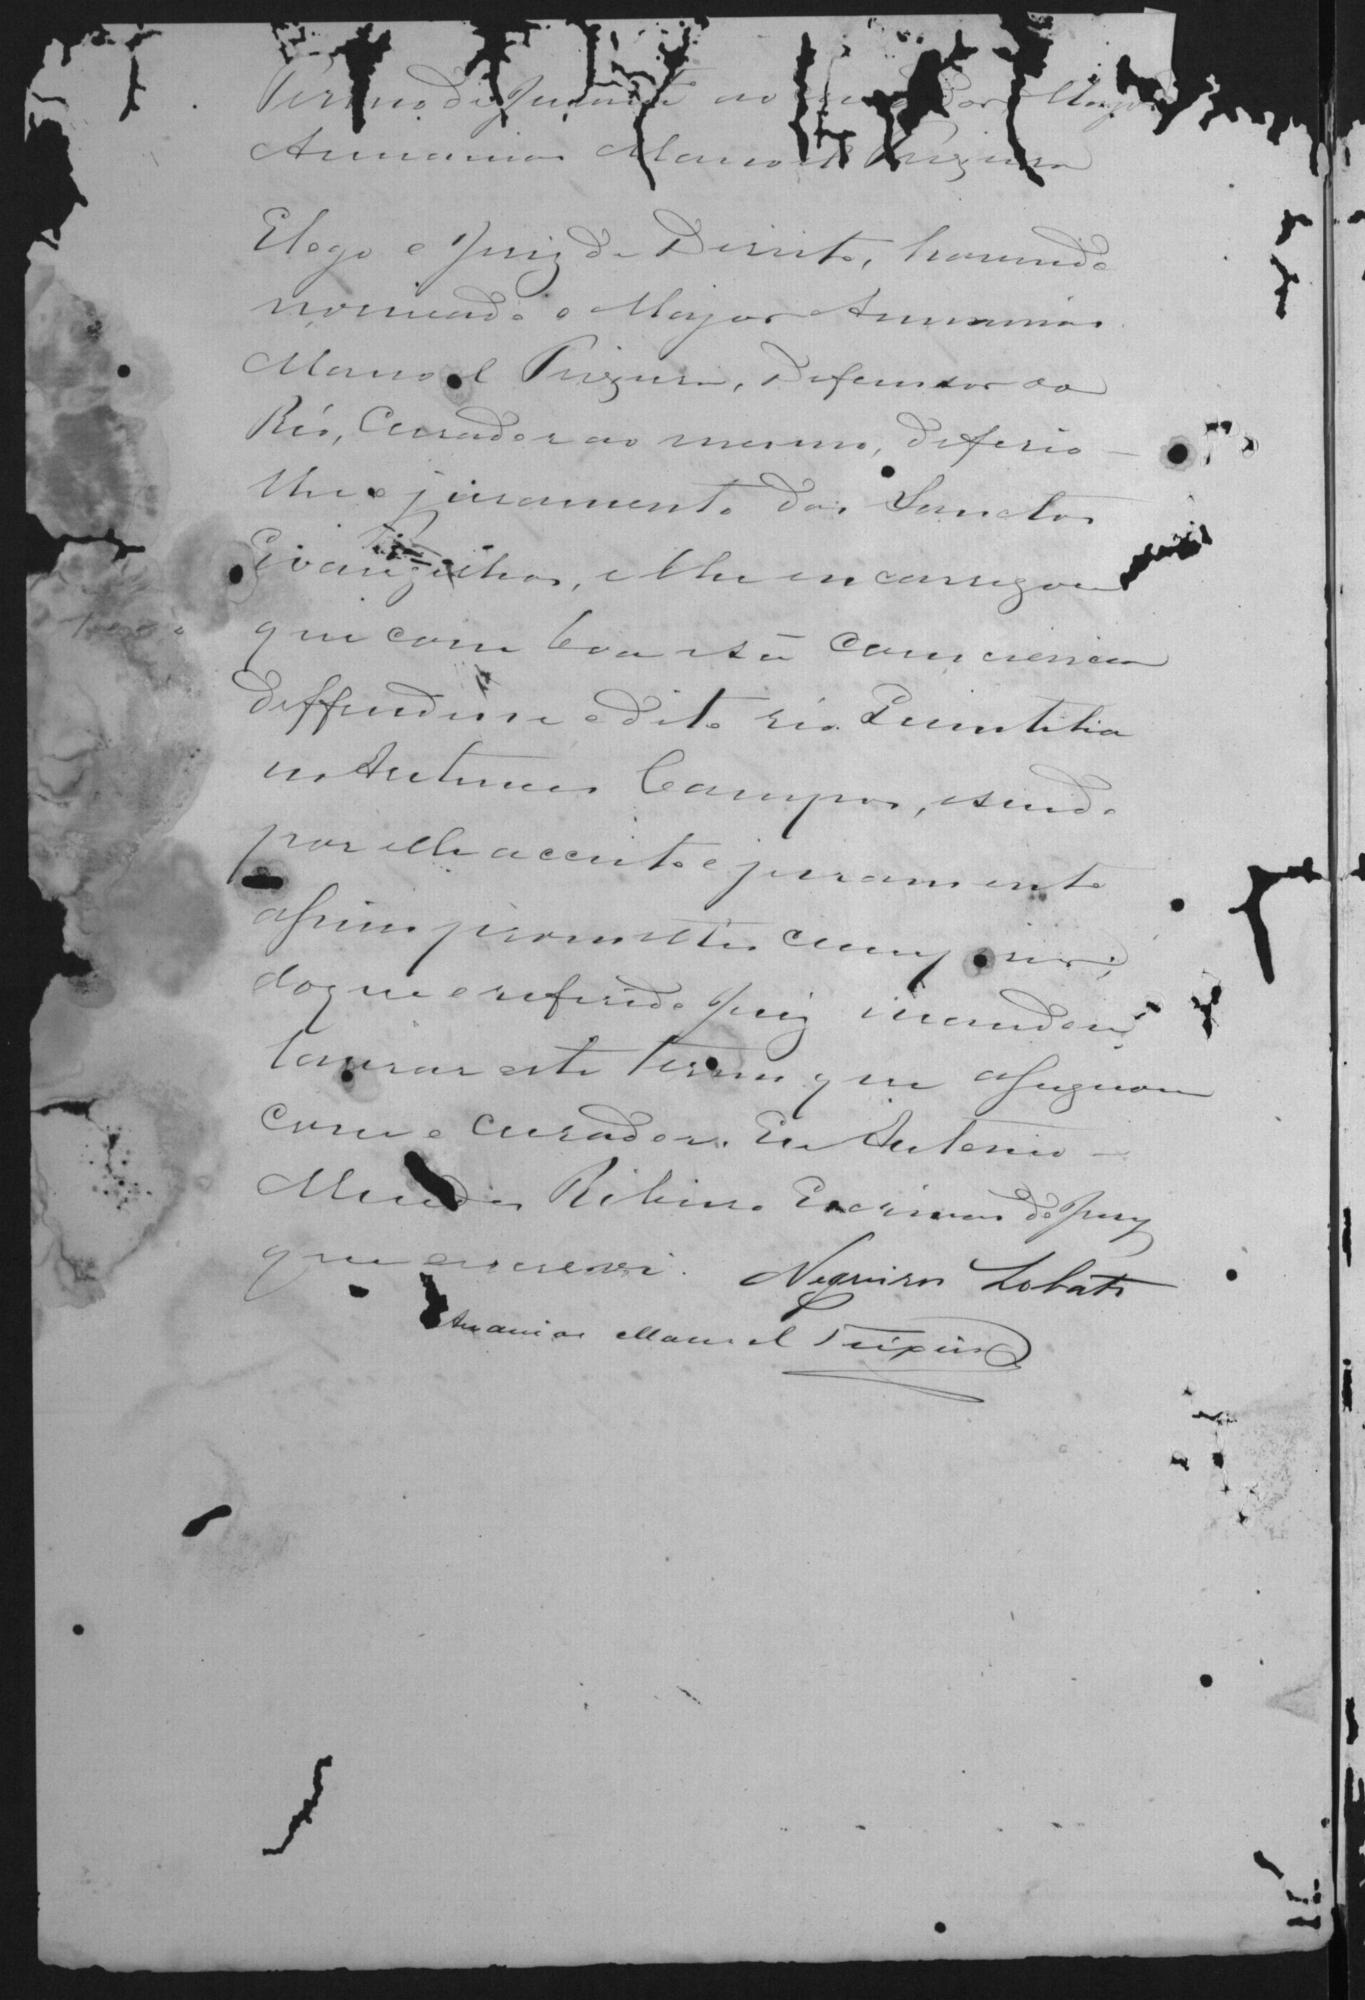 Termo de juramto ao Curador, Major
Annanias Manoel Teixeira
E logo o Juiz de Direito, havendo
nomeado o Major Annanias
Manoel Teixeira, Defensor ao
Réo, Curador ao mesmo, deferio-
lhe o juramento dos Sanctos
Evangelhos, e lhe encarregou
que com boa e sã consciencia
deffendesse o dito réo Quintilia
no Antunes Campos, e sendo
por elle acceito o juramento
assim prometteu cumprir;
do que o referido Juiz mandou
lavrar este termo que assignou
com o Curador. Eu Antonio
Mendes Ribeiro Escrivão do Jury
que escrevi. Nogueira Lobato
Ananias Manoel Teixeira